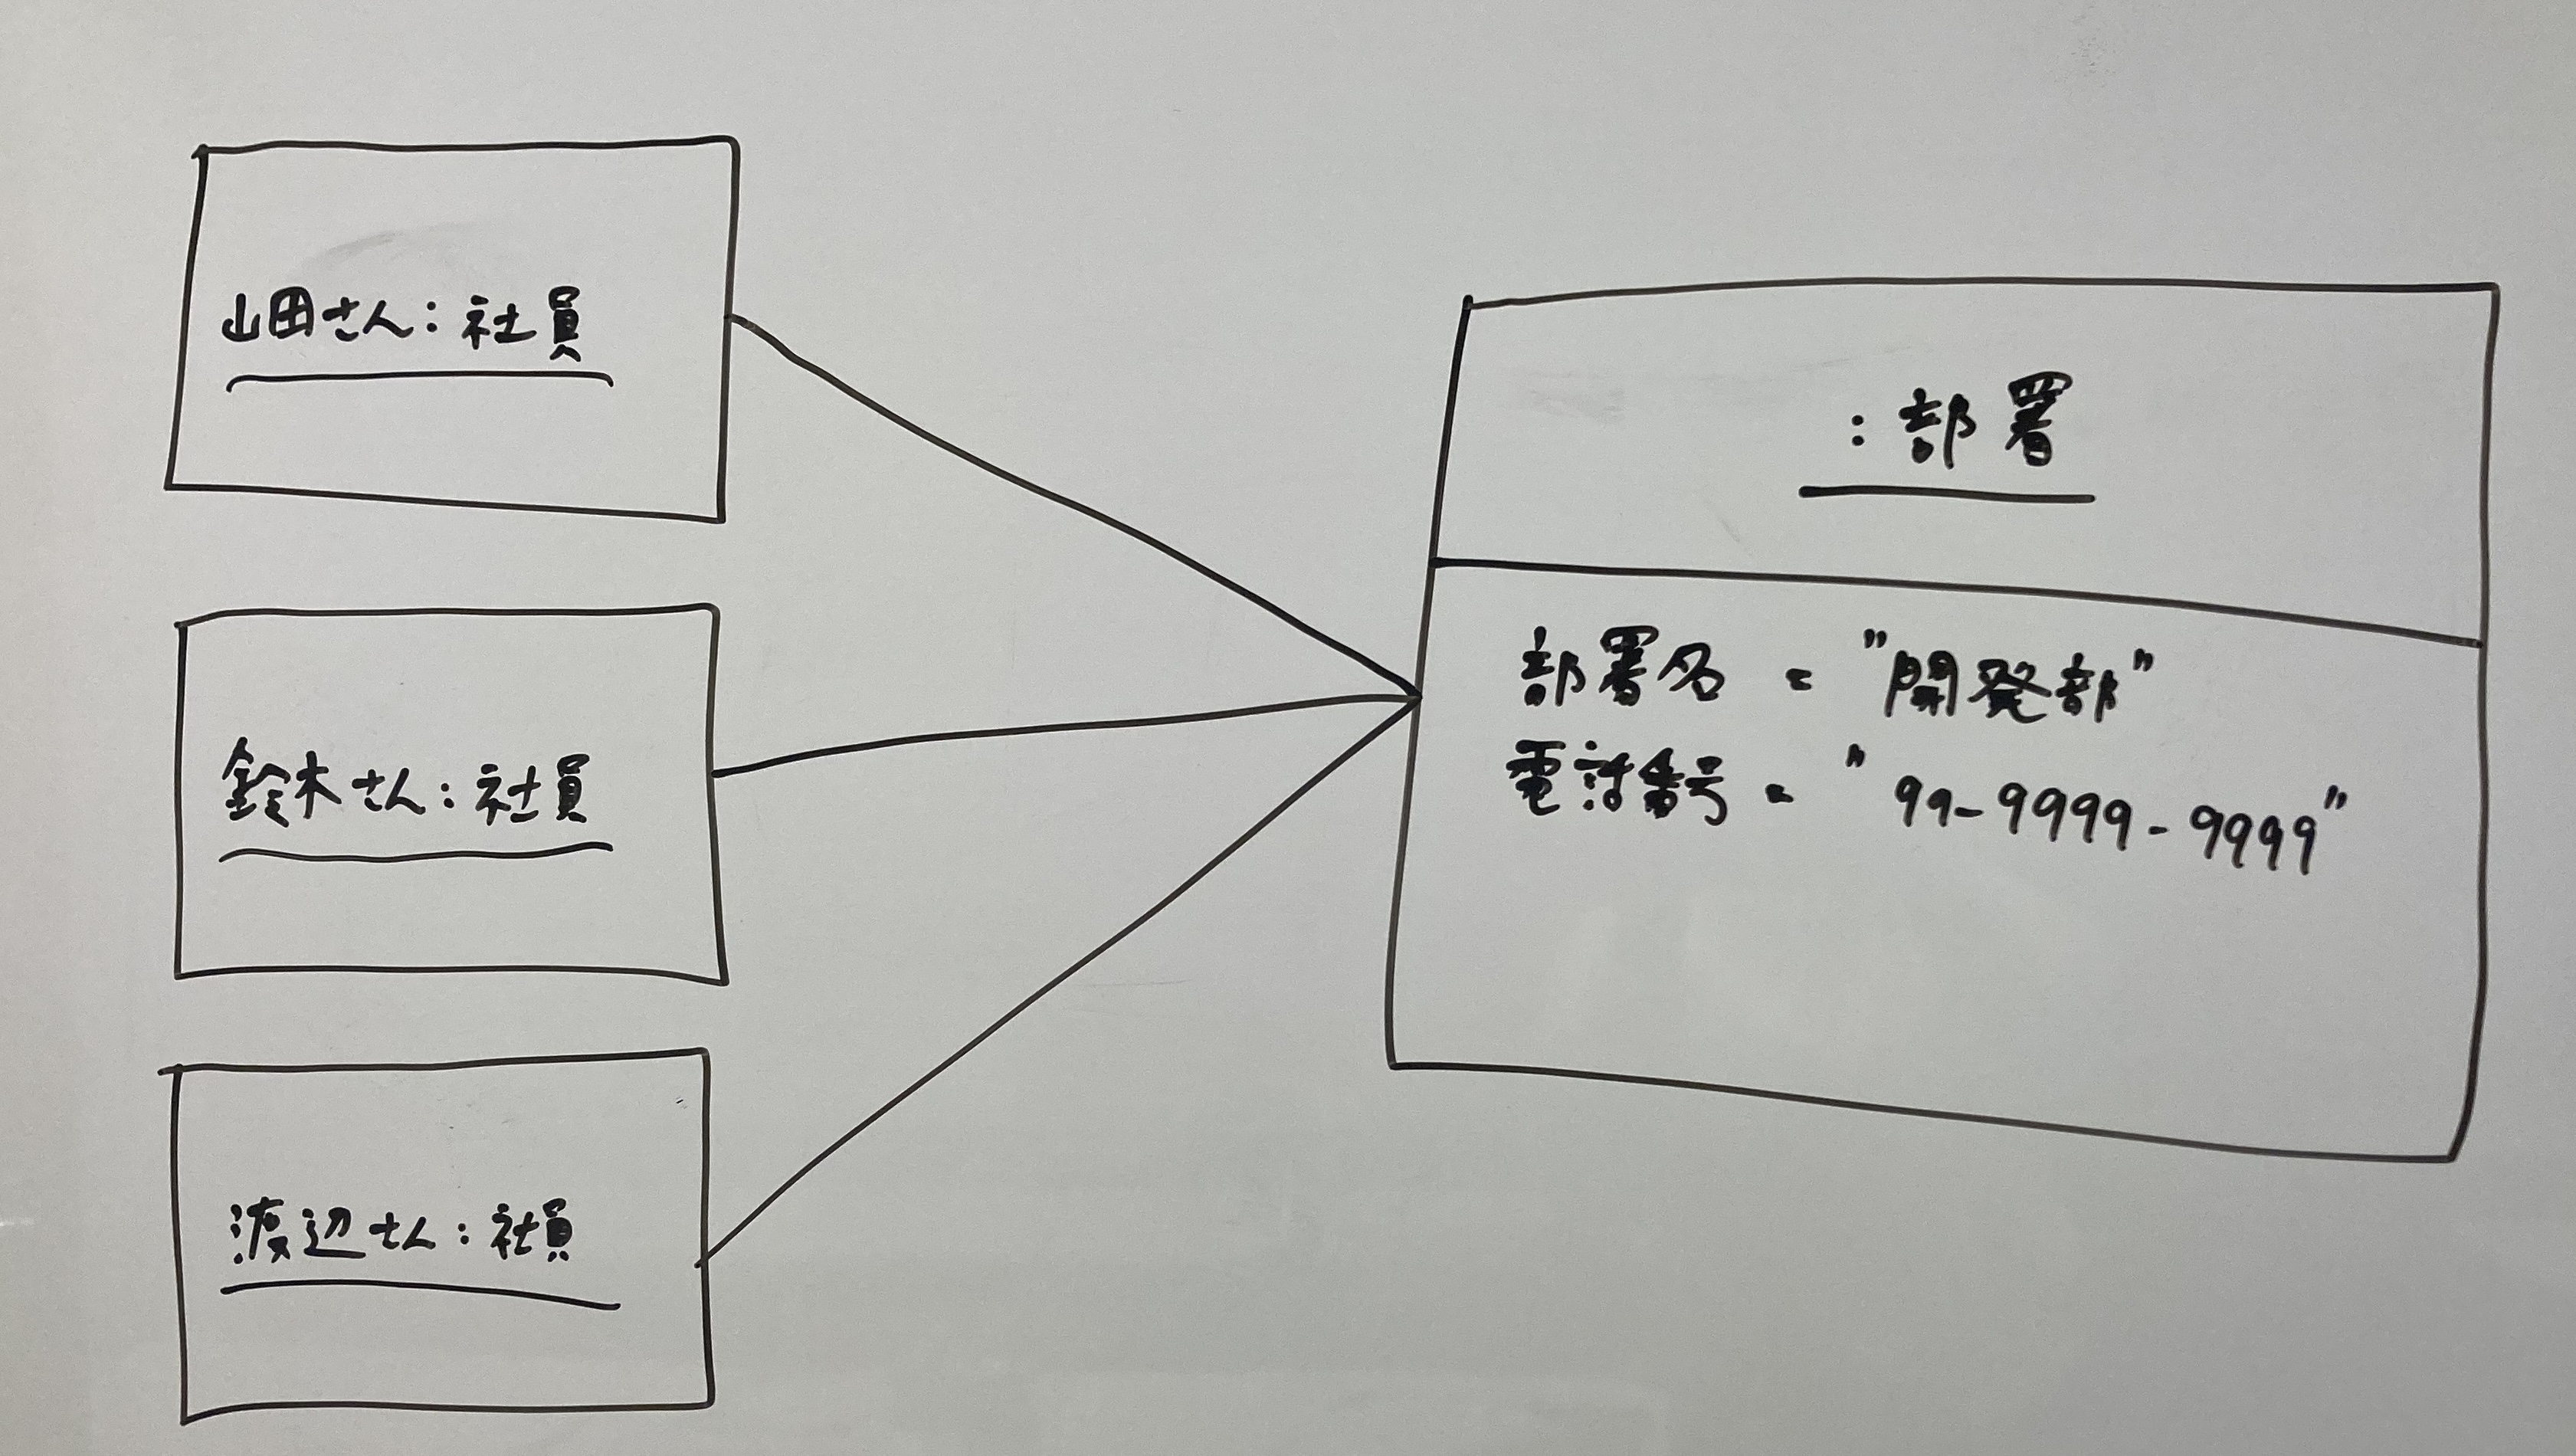 山田さん：社員
鈴木さん：社員
渡辺さん：社員
：部署
部署名 = "開発部"
電話番号 = "99-9999-9999"